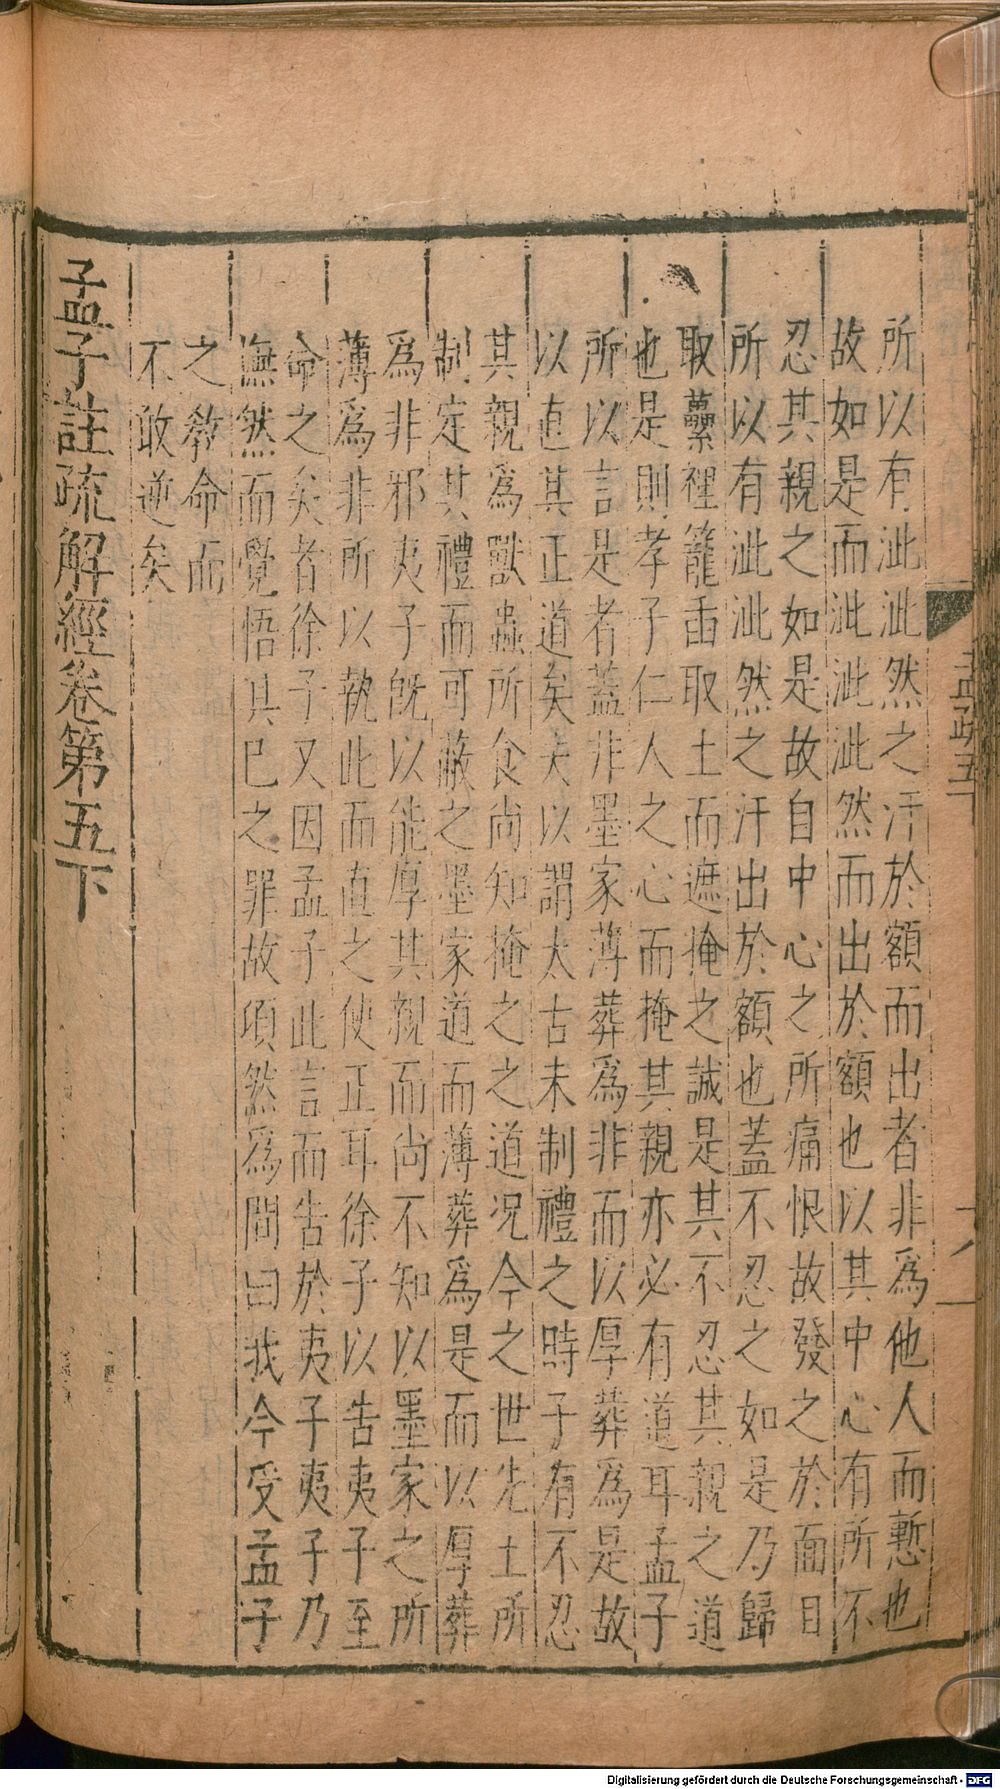 所以有泚泚然之汗於額而出者非爲他人而慙也
故如是而泚泚泚然而出於額也以其中心有所不
忍其親之如是故自中心之所痛恨故發之於面目
所以有泚泚然之汗出於額也蓋不忍之如是乃歸
取虆裡籠臿取土而遮掩之誠是其不忍其親之道
也是則孝子仁人之心而掩其親亦必有道耳孟子
所以言是者蓋非墨家薄葬爲非而以厚葬爲是故
以直其正道矣夫以謂太古未制禮之時子有不忍
其親爲獸蟲所食尚知掩之之道况今之世先王所
制定其禮而可蔽之墨家道而薄葬爲是而以厚葬
爲非邪夷子旣以能厚其親而尚不知以墨家之所
薄爲非所以執此而直之使正耳徐子以告夷子至
命之矣者徐子又因孟子此言而告於夷子夷子乃
憮然而覺悟其巳之罪故頃然爲間曰我今受孟子
之敎命而
不敢逆矣
孟子註疏解經卷第五下
孟疏五下
十八
Digitalisierung gefördert durch die Deutsche Forschungsgemeinschaft - DFG